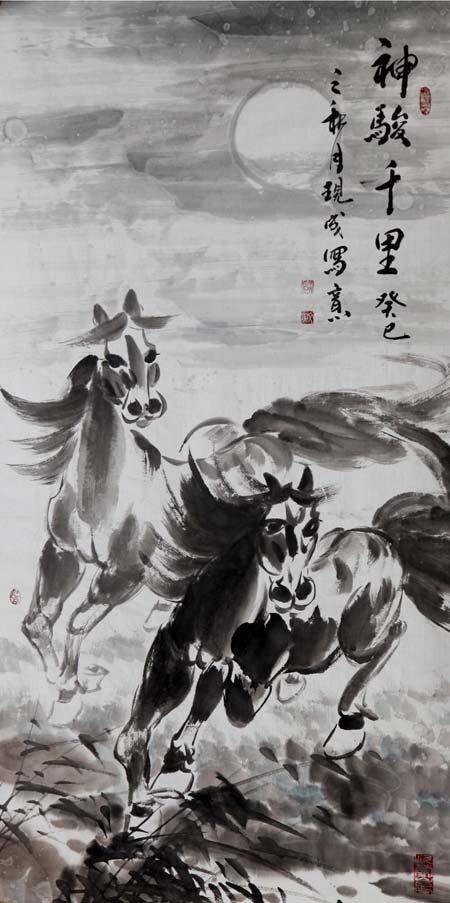 神駿千里 癸巳
之秋月現成寫意